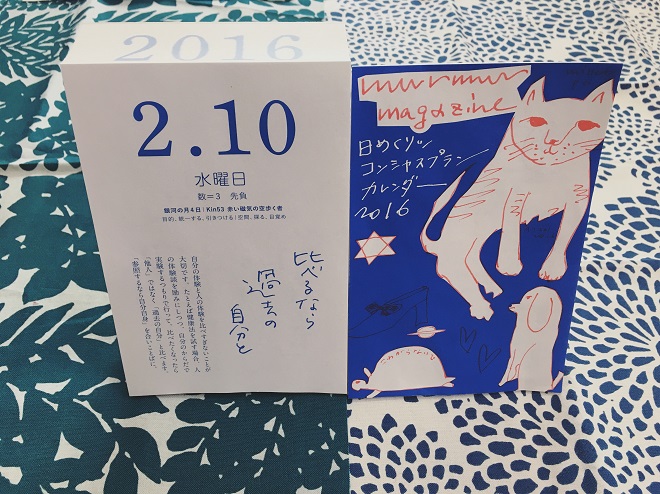 2016
2.10
水曜日
数＝3 先負
銀河の月4日｜Kin53 赤い磁気の空歩く者
目的、統一する、引きつける｜空間、探る、目覚め
比べるなら
過去の
自分と
自分の体験と人の体験を比べすぎないことが
大切です。たとえば健康法を試す場合、人
の体験談を励みにしつつ、自分のからだで
実験するつもりで行って、比べたくなったら
「他人」ではなく、「過去の自分」と比べます。
「参照するなら自分自身」を合いことばに。
murmur
magazine
日めくりッ
コンシャスプラン
カレンダー
2016